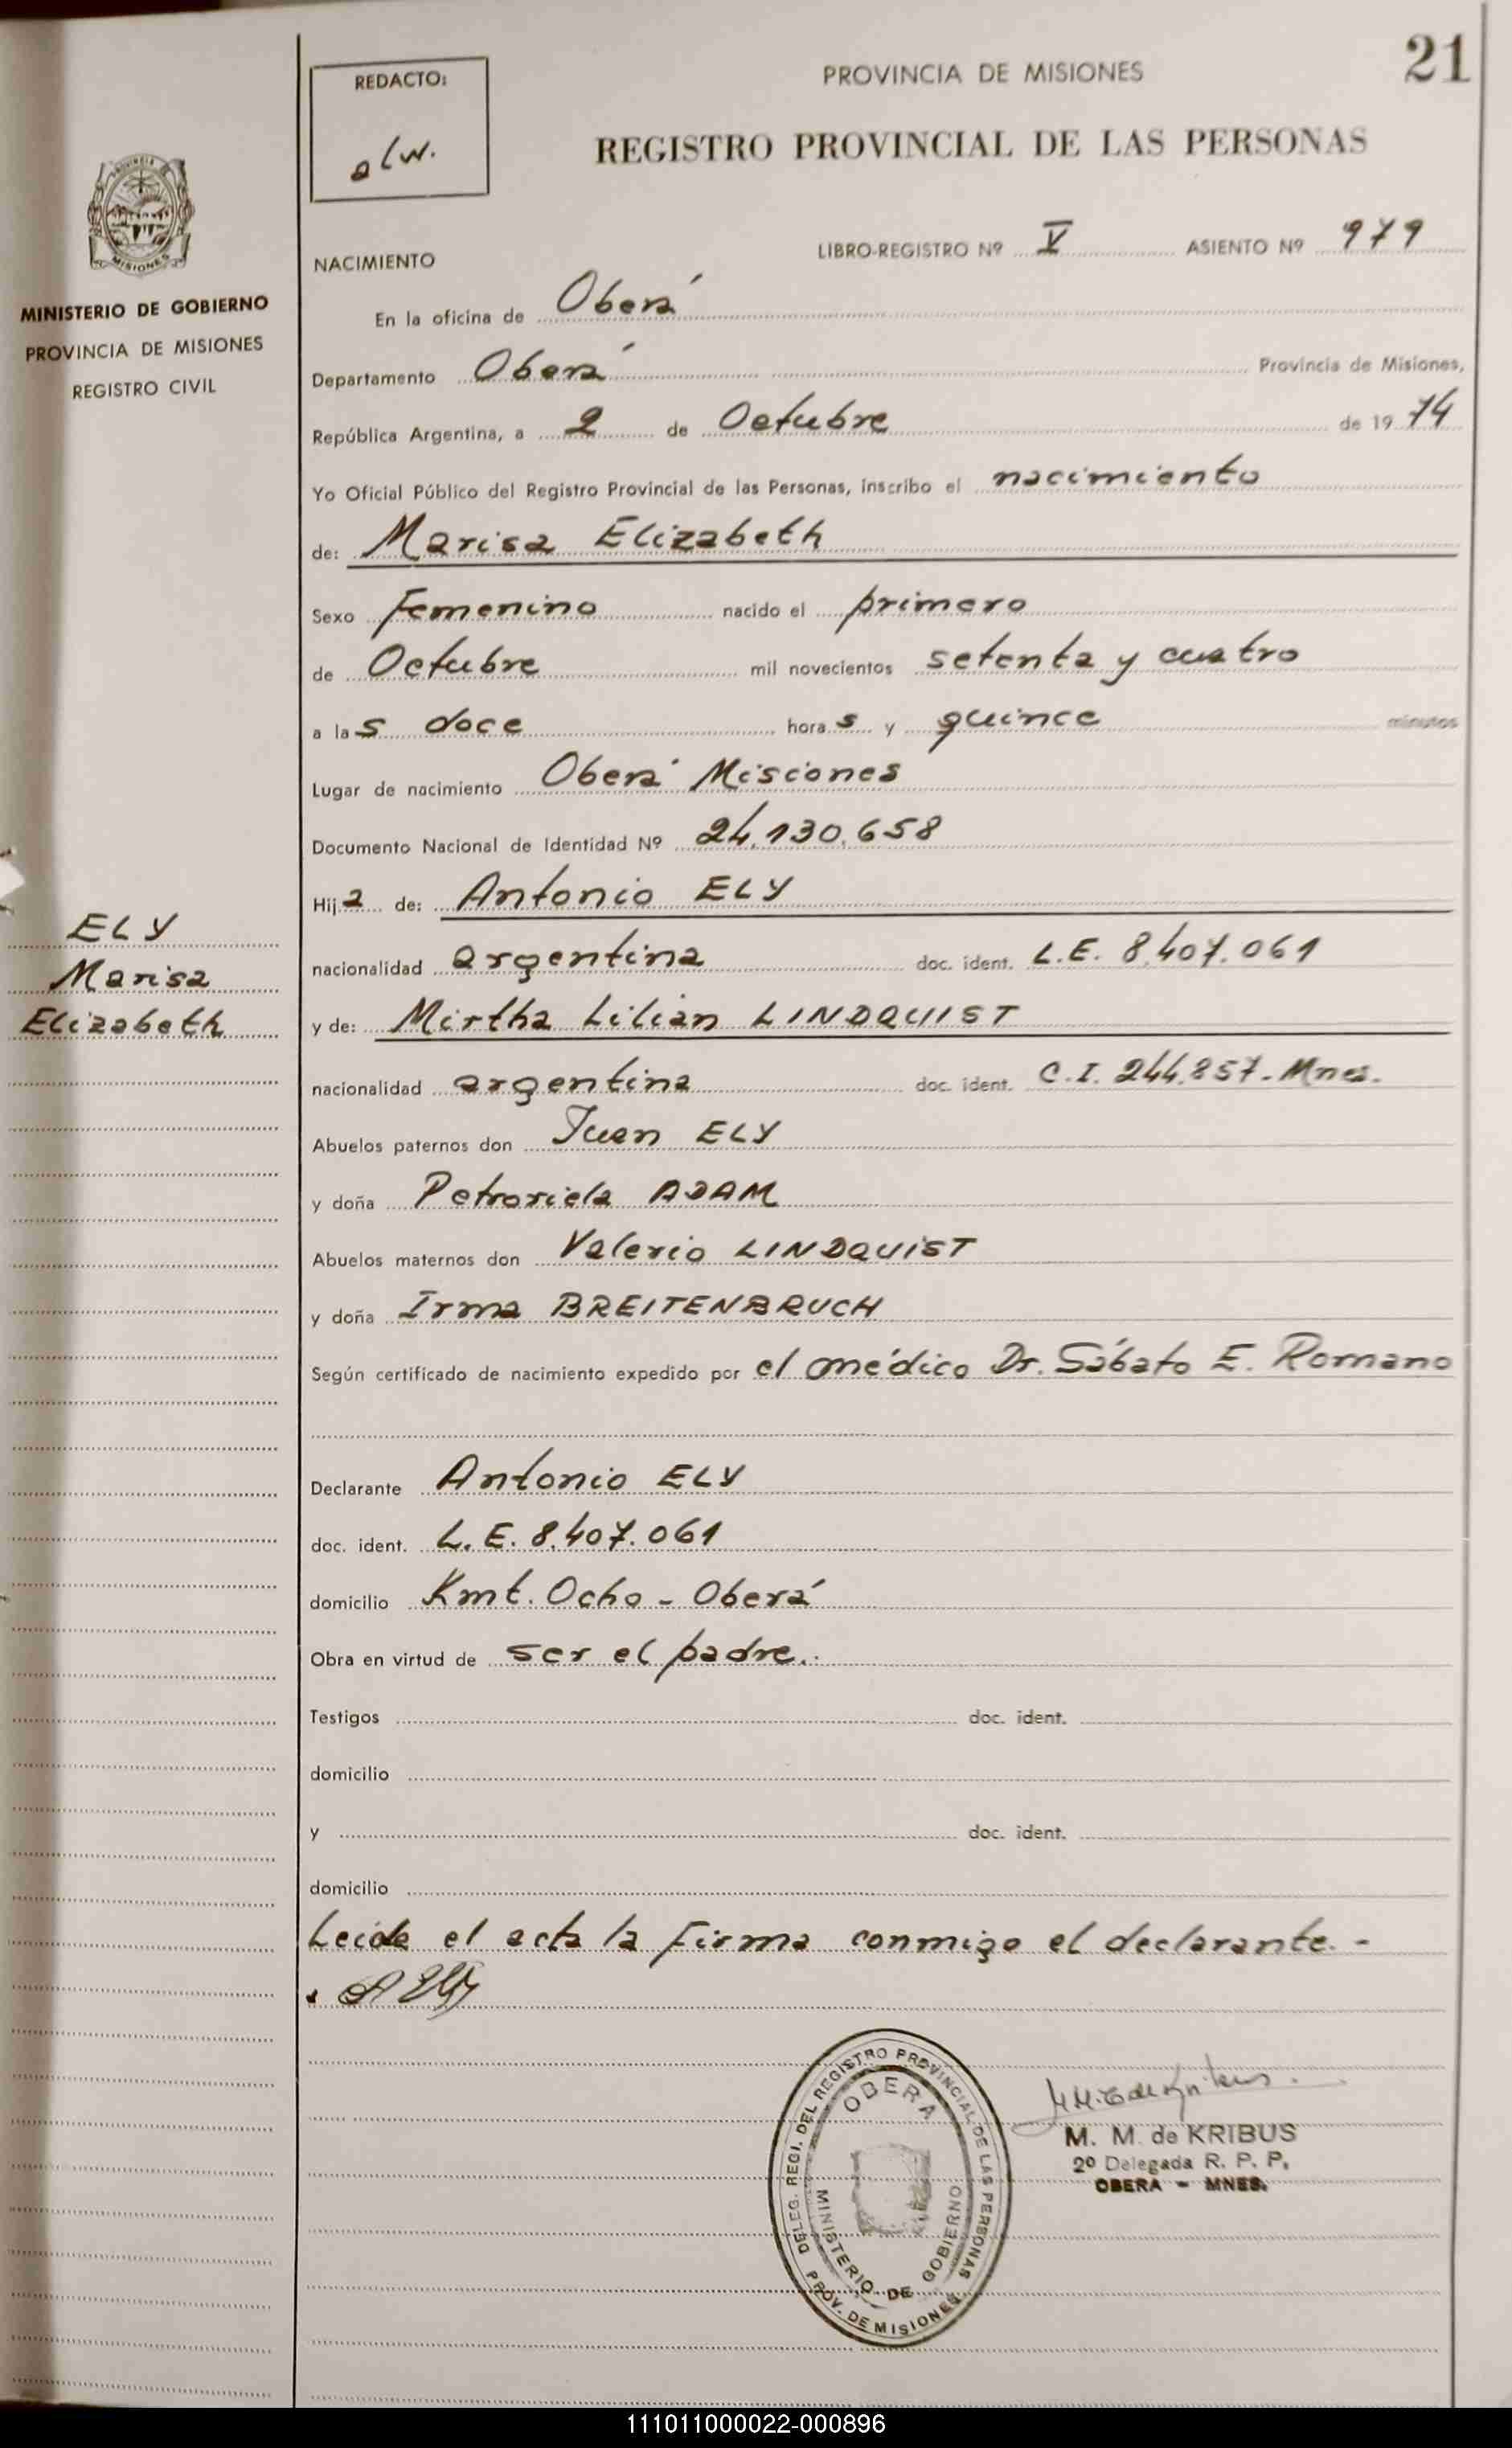 21
REDACTO:
alw.
PROVINCIA DE MISIONES
REGISTRO PROVINCIAL DE LAS PERSONAS
MISIONES
MINISTERIO DE GOBIERNO
PROVINCIA DE MISIONES
REGISTRO CIVIL
NACIMIENTO
LIBRO-REGISTRO Nº V ASIENTO Nº 979
En la oficina de Oberá
Departamento Oberá Provincia de Misiones,
República Argentina, a 2 de Octubre de 19 74
Yo Oficial Público del Registro Provincial de las Personas, inscribo el nacimiento
de: Marisa Elizabeth
Sexo Femenino nacido el primero
de Octubre mil novecientos setenta y cuatro
a las doce horas y quince minutos
Lugar de nacimiento Oberá Misiones
Documento Nacional de Identidad Nº 24.130.658
Hija de: Antonio ELY
ELY
Marisa
Elizabeth
nacionalidad argentina doc. ident. L.E. 8.407.061
y de: Mirtha Lilian LINDQUIST
nacionalidad argentina doc. ident. C.I. 244.857-Mnes.
Abuelos paternos don Juan ELY
y doña Petroriela ADAM
Abuelos maternos don Valerio LINDQUIST
y doña Irma BREITENBRUCH
Según certificado de nacimiento expedido por el médico Dr. Sábato E. Romano
Declarante Antonio ELY
doc. ident. L.E. 8.407.061
domicilio Kmt. Ocho - Oberá
Obra en virtud de ser el padre.
Testigos doc. ident.
domicilio
y doc. ident.
domicilio
Leída el acta la firma conmigo el declarante. -
A Ely
DELEG. REGI. DEL REGISTRO PROVINCIAL DE LAS PERSONAS
PROV. DE MISIONES
OBERA
MINISTERIO DE GOBIERNO
M. M. de KRIBUS
2º Delegada R. P. P.
OBERA - MNES.
111011000022-000896